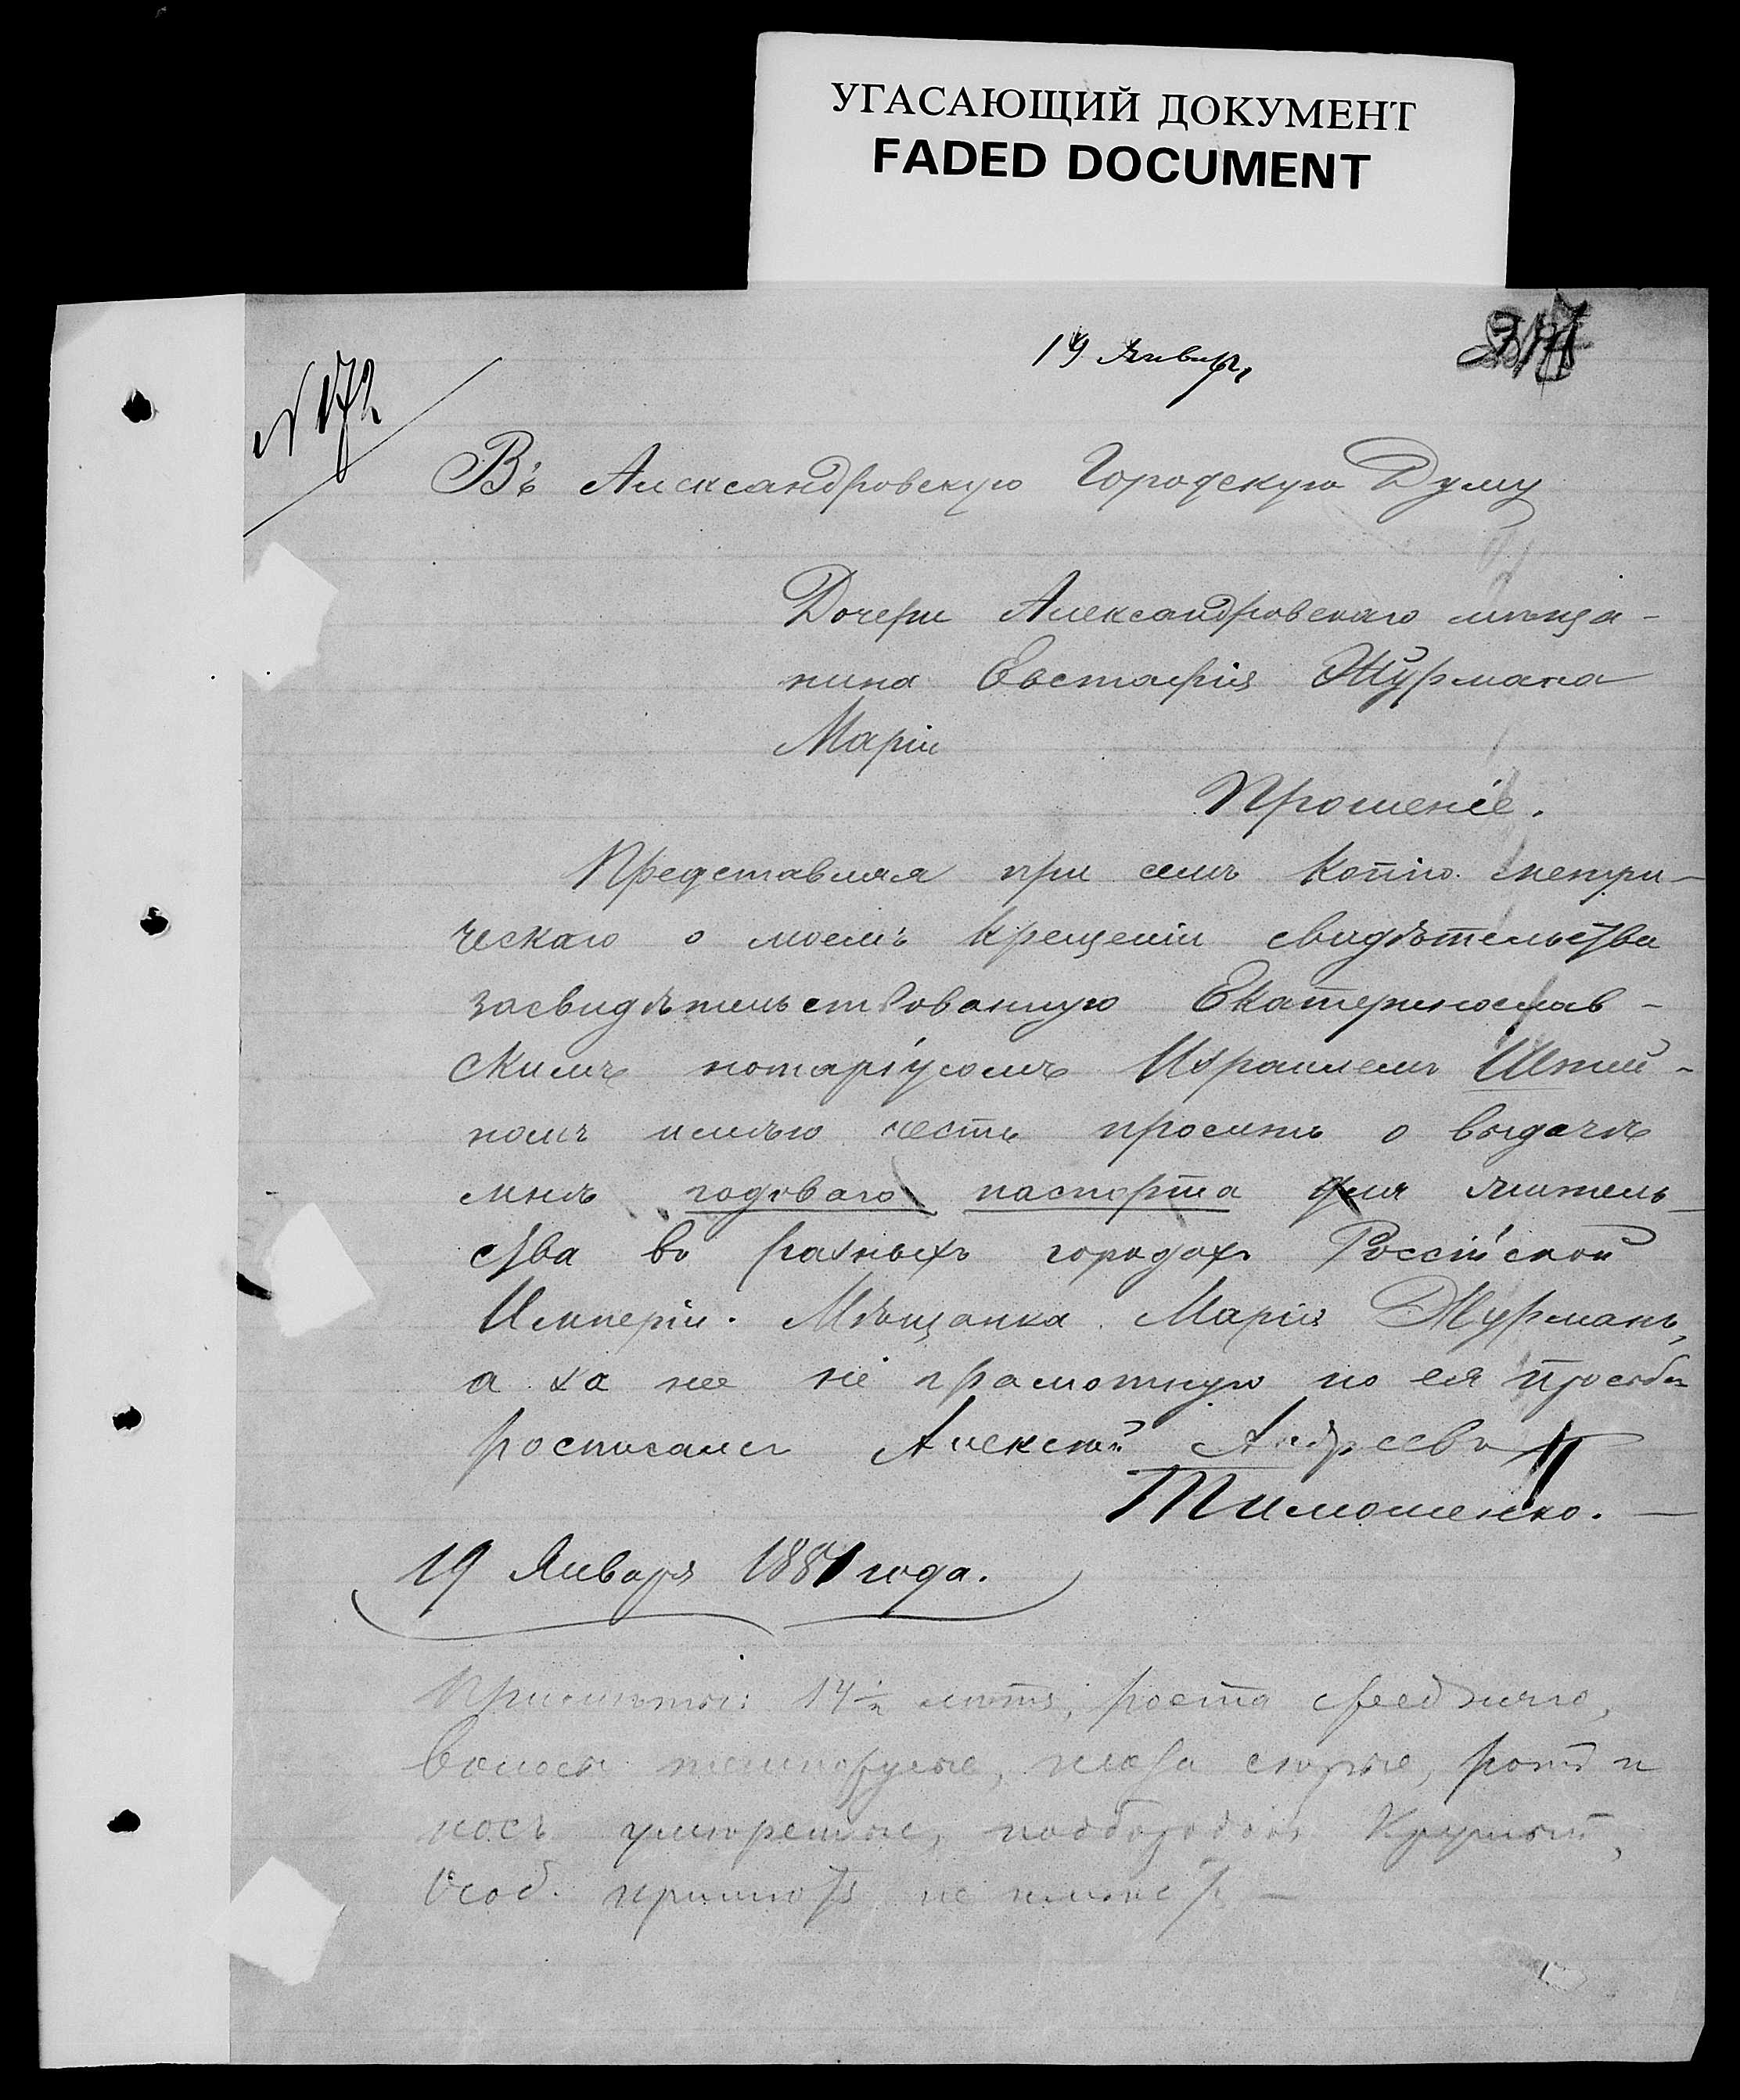 УГАСАЮЩИЙ ДОКУМЕНТ
FADED DOCUMENT
19 Января
N 172
Въ Александровскую Городскую Думу
Дочери Александровскаго мѣща-
нина Евстафія Журмана
Маріи
Прошеніе.
Представляя при семъ копію метри-
ческаго о моемъ крещеніи свидѣтельства
засвидѣтельствованную Екатеринослав-
скимъ нотаріусомъ Израилемъ Штей-
номъ имѣю честь просить о выдачѣ
мнѣ годоваго паспорта для житель-
ства во разныхъ городахъ Россійской
Имперіи. Мѣщанка Марія Журманъ,
а за нее не грамотную по ея просьбѣ
росписался Алексѣй Андреевъ
Тимошенко.
19 Января 1881 года.
Примѣты: 14½ лѣтъ, роста средняго,
волосы темнорусые, глаза сѣрые, ротъ и
носъ умѣренные, подбородокъ круглый,
Особ. примѣтъ не имѣетъ